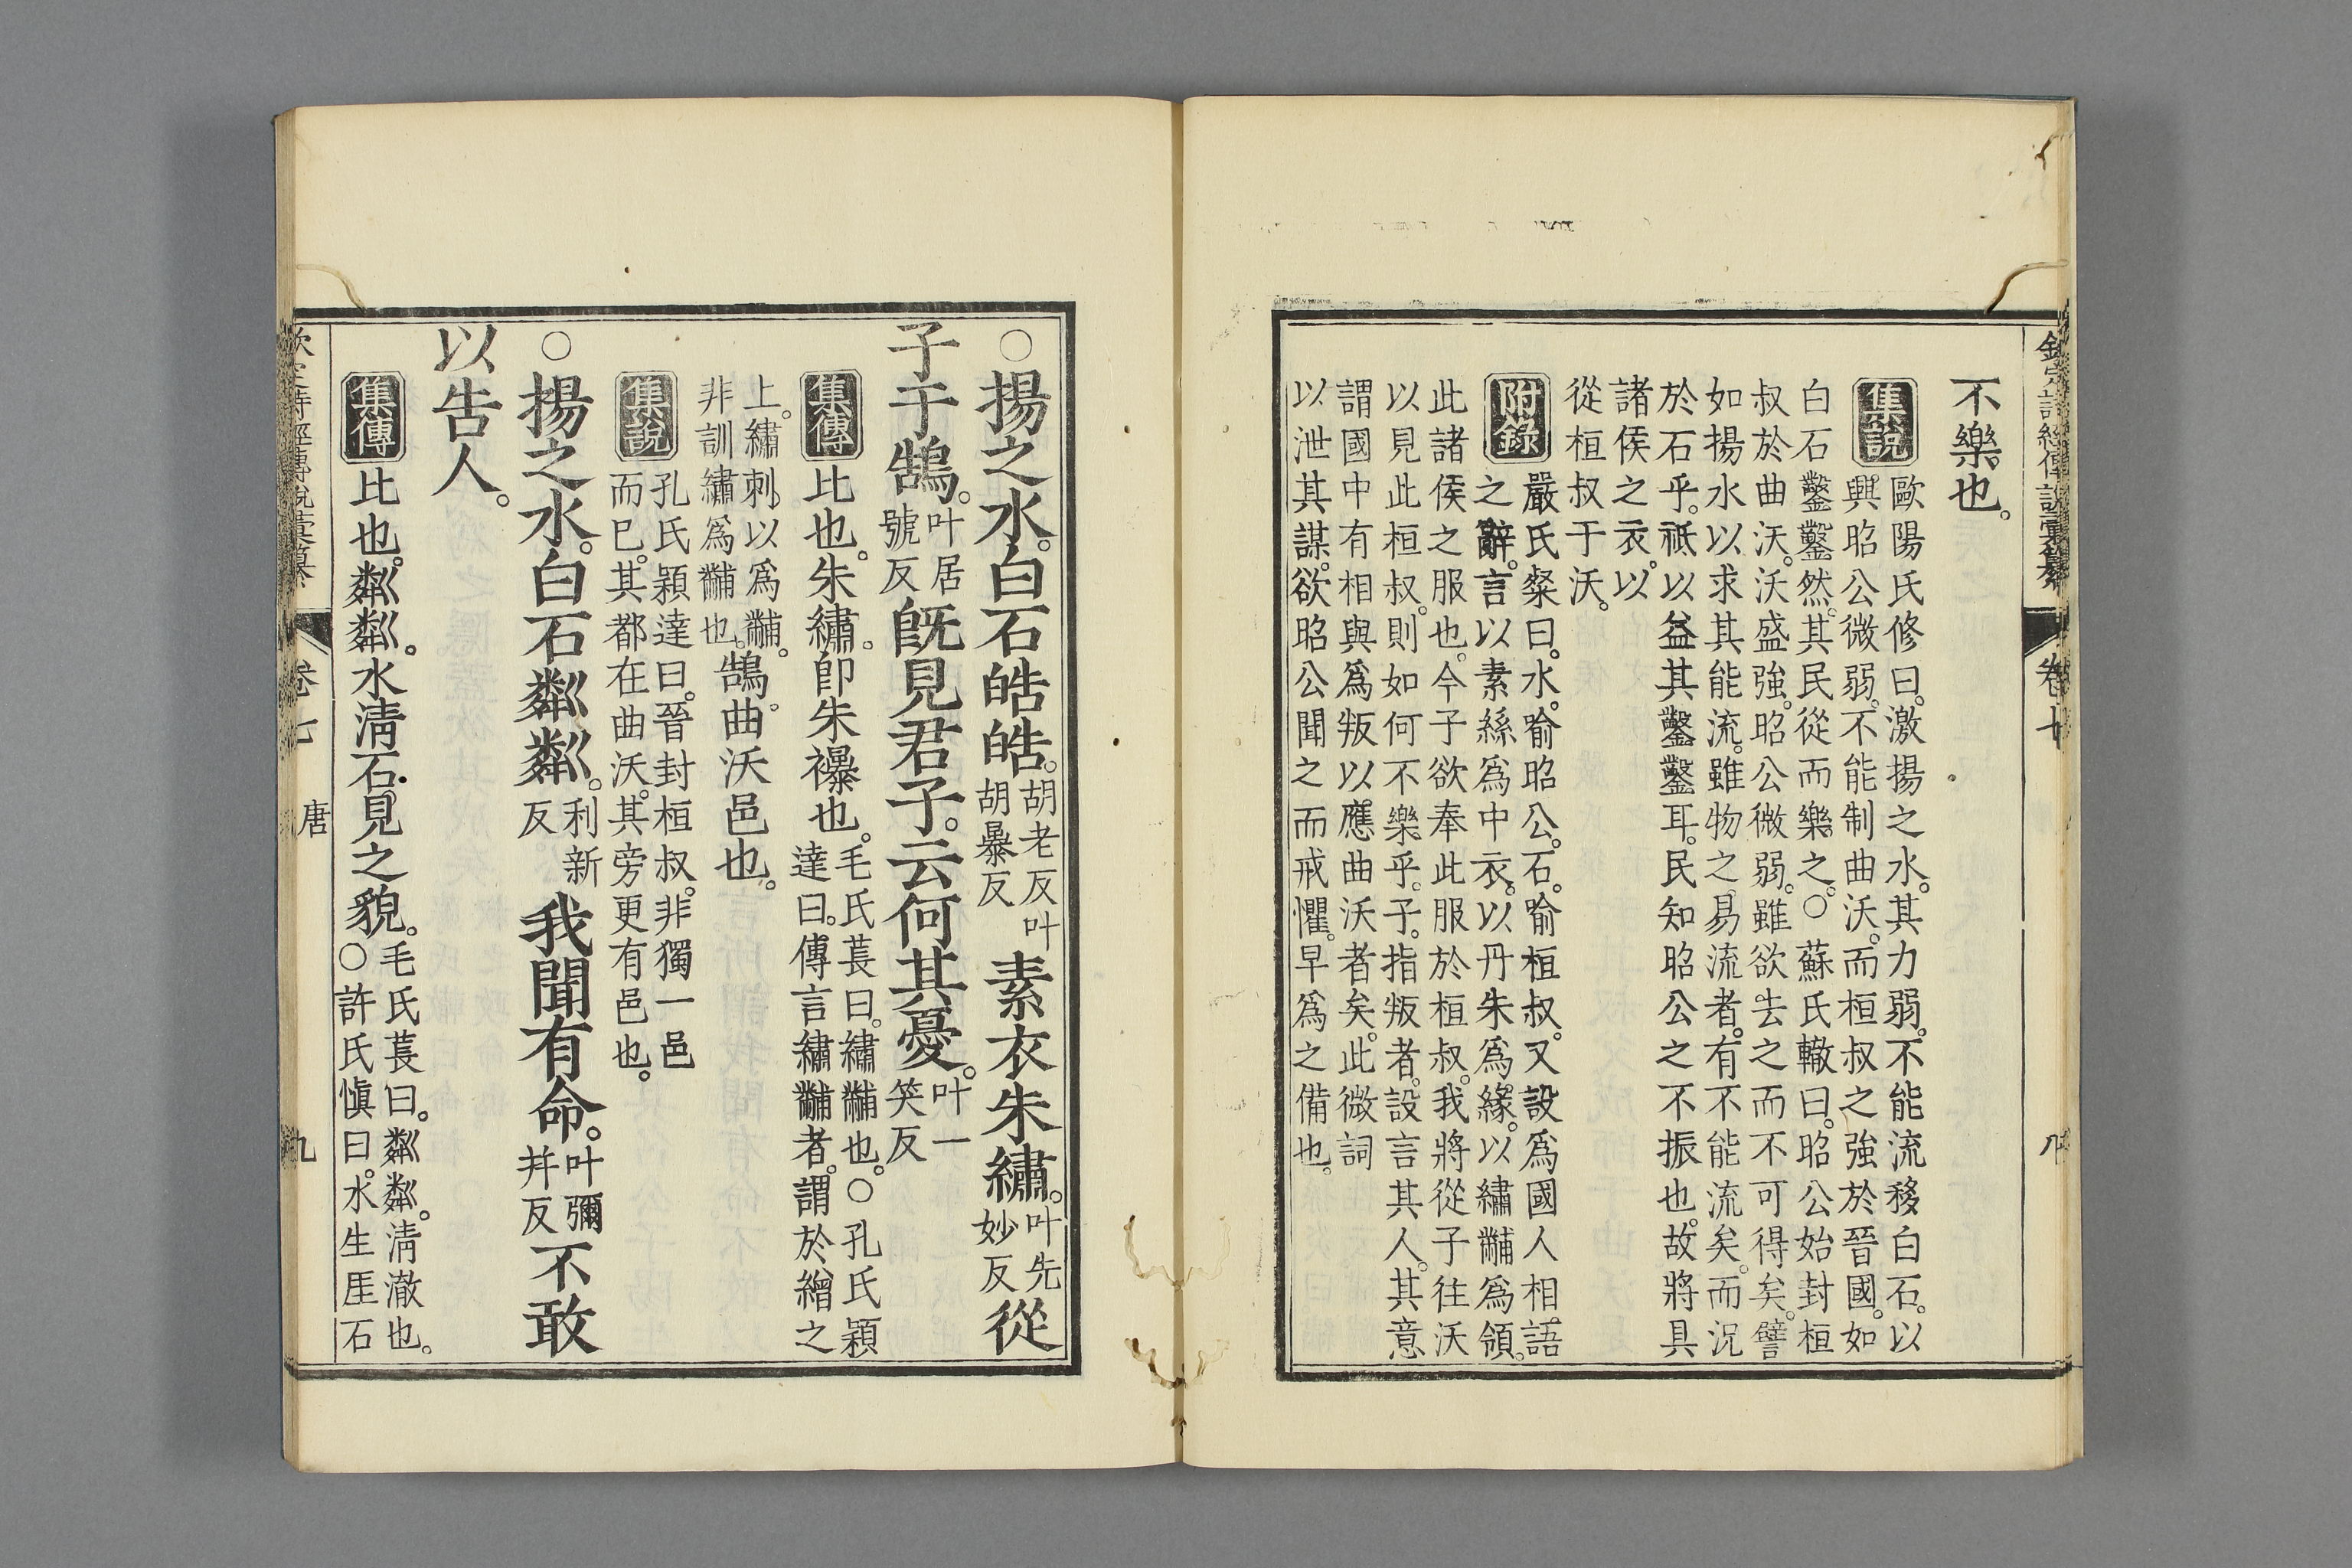 不樂也。
集說
歐陽氏修曰。激揚之水。其力弱。不能流移白石。以
興昭公微弱。不能制曲沃。而桓叔之強於晉國。如
白石鑿鑿然。其民從而樂之。○蘇氏轍曰。昭公始封桓
叔於曲沃。沃盛強。昭公微弱。雖欲去之而不可得矣。譬
如揚水以求其能流。雖物之易流者。有不能流矣。而況
於石乎。祗以益其鑿鑿耳。民知昭公之不振也。故將具
諸侯之衣。以
從桓叔于沃。
附錄
嚴氏粲曰。水。喻昭公。石。喻桓叔。又設為國人相語
之辭。言以素絲為中衣。以丹朱為緣。以繡黼為領。
此諸侯之服也。今子欲奉此服於桓叔。我將從子往沃
以見此桓叔。則如何不樂乎。子。指叛者。設言其人。其意
謂國中有相與爲叛以應曲沃者矣。此微詞
以泄其謀。欲昭公聞之而戒懼。早爲之備也。
卷七
八
○揚之水。白石皓皓。胡老反叶
胡暴反
素衣朱繡。叶先
妙反
從
子于鵠。叶居
號反
旣見君子。云何其憂。叶一
笑反
集傳
比也。朱繡。卽朱襮也。毛氏萇曰。繡黼也。○孔氏穎
達曰。傳言繡黼者。謂於繒之
上。繡刺。以爲黼。
非訓繡爲黼也。
鵠。曲沃邑也。
集說
孔氏穎達曰。晉封桓叔。非獨一邑
而已。其都在曲沃。其旁更有邑也。
○揚之水。白石粼粼。利新
反。
我聞有命。叶彌
幷反
不敢
以告人。
集傳
比也。粼粼。水淸石見之貌。毛氏萇曰。粼粼。淸澈也。
○許氏愼曰。水生厓石
卷七
唐
九